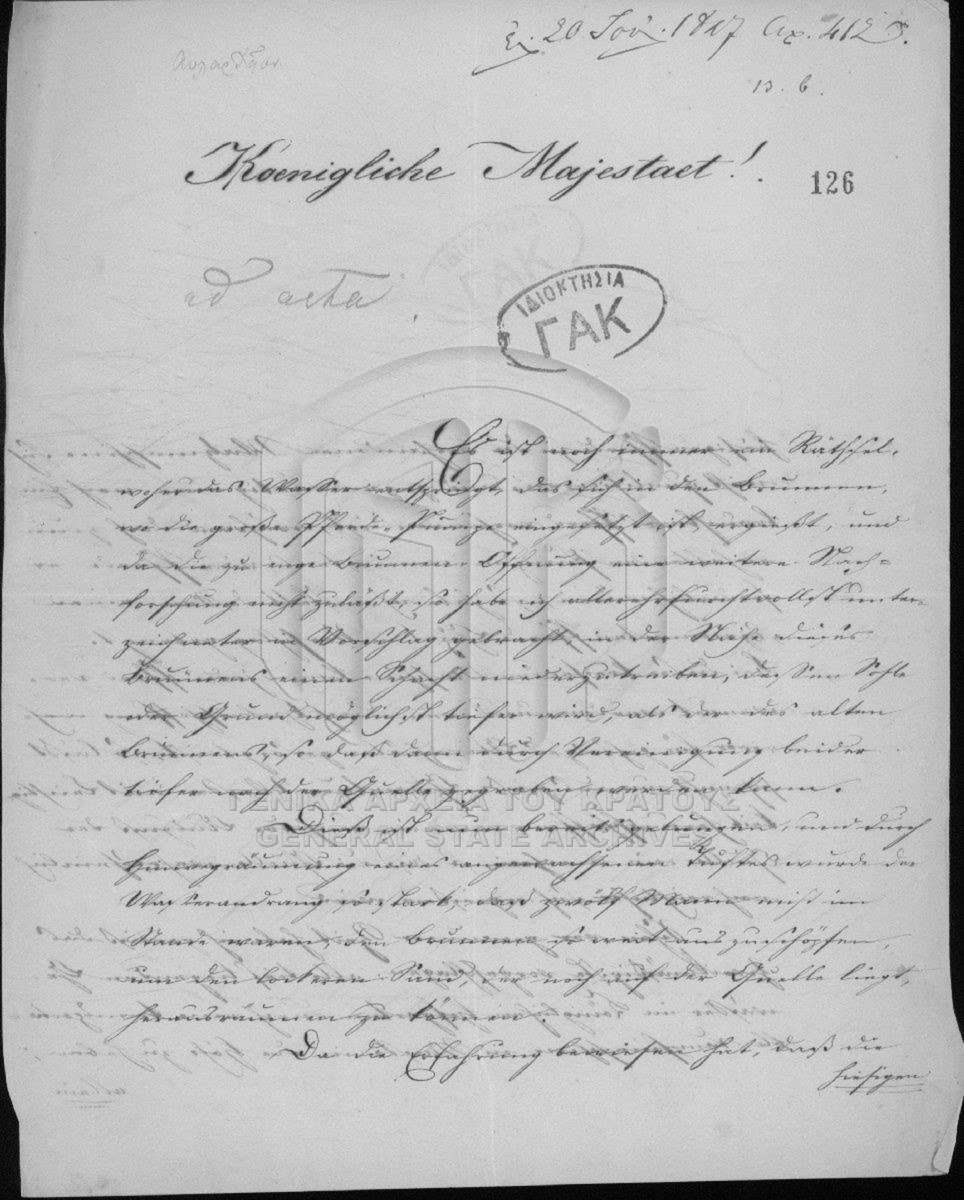 20 1847 Αρ. 412
13. 6.
Kœnigliche Majestaet!
126
ad acta
ΙΔΙΟΚΤΗΣΙΑ
ΓΑΚ
Es ist noch immer ein Räthsel,
woher das Wasser entspringt, das sich in den Brunnen,
wo die große Pferde-Pumpe eingesetzt ist, ergießt, und
da die zu enge Brunnen-Öffnung eine weitere Nach-
forschung nicht zuläßt, so habe ich allerehrfurchtvollst unter-
zeichneter in Vorschlag gebracht, in der Nähe dieses
Brunnens einen Schacht niederzutreiben, dessen Sohle
oder Grund möglichst tiefer wird, als der des alten
Brunnens, so daß dann durch Vereinigung beider
tiefer nach der Quelle gegraben werden kann.
ΓΕΝΙΚΑ ΑΡΧΕΙΑ ΤΟΥ ΚΡΑΤΟΥΣ
GENERAL STATE ARCHIVES
Dieß ist nun bereits gelungen, und durch
Hinwegräumung eines angewachsenen Tuffes wurde der
Wasserandrang so stark, daß zwölf Mann nicht im
Stande waren, den Brunnen so weit auszuschöpfen,
um den lockeren Sand, der noch auf der Quelle liegt,
herausräumen zu können.
Da die Erfahrung bewiesen hat, daß die
hiesigen